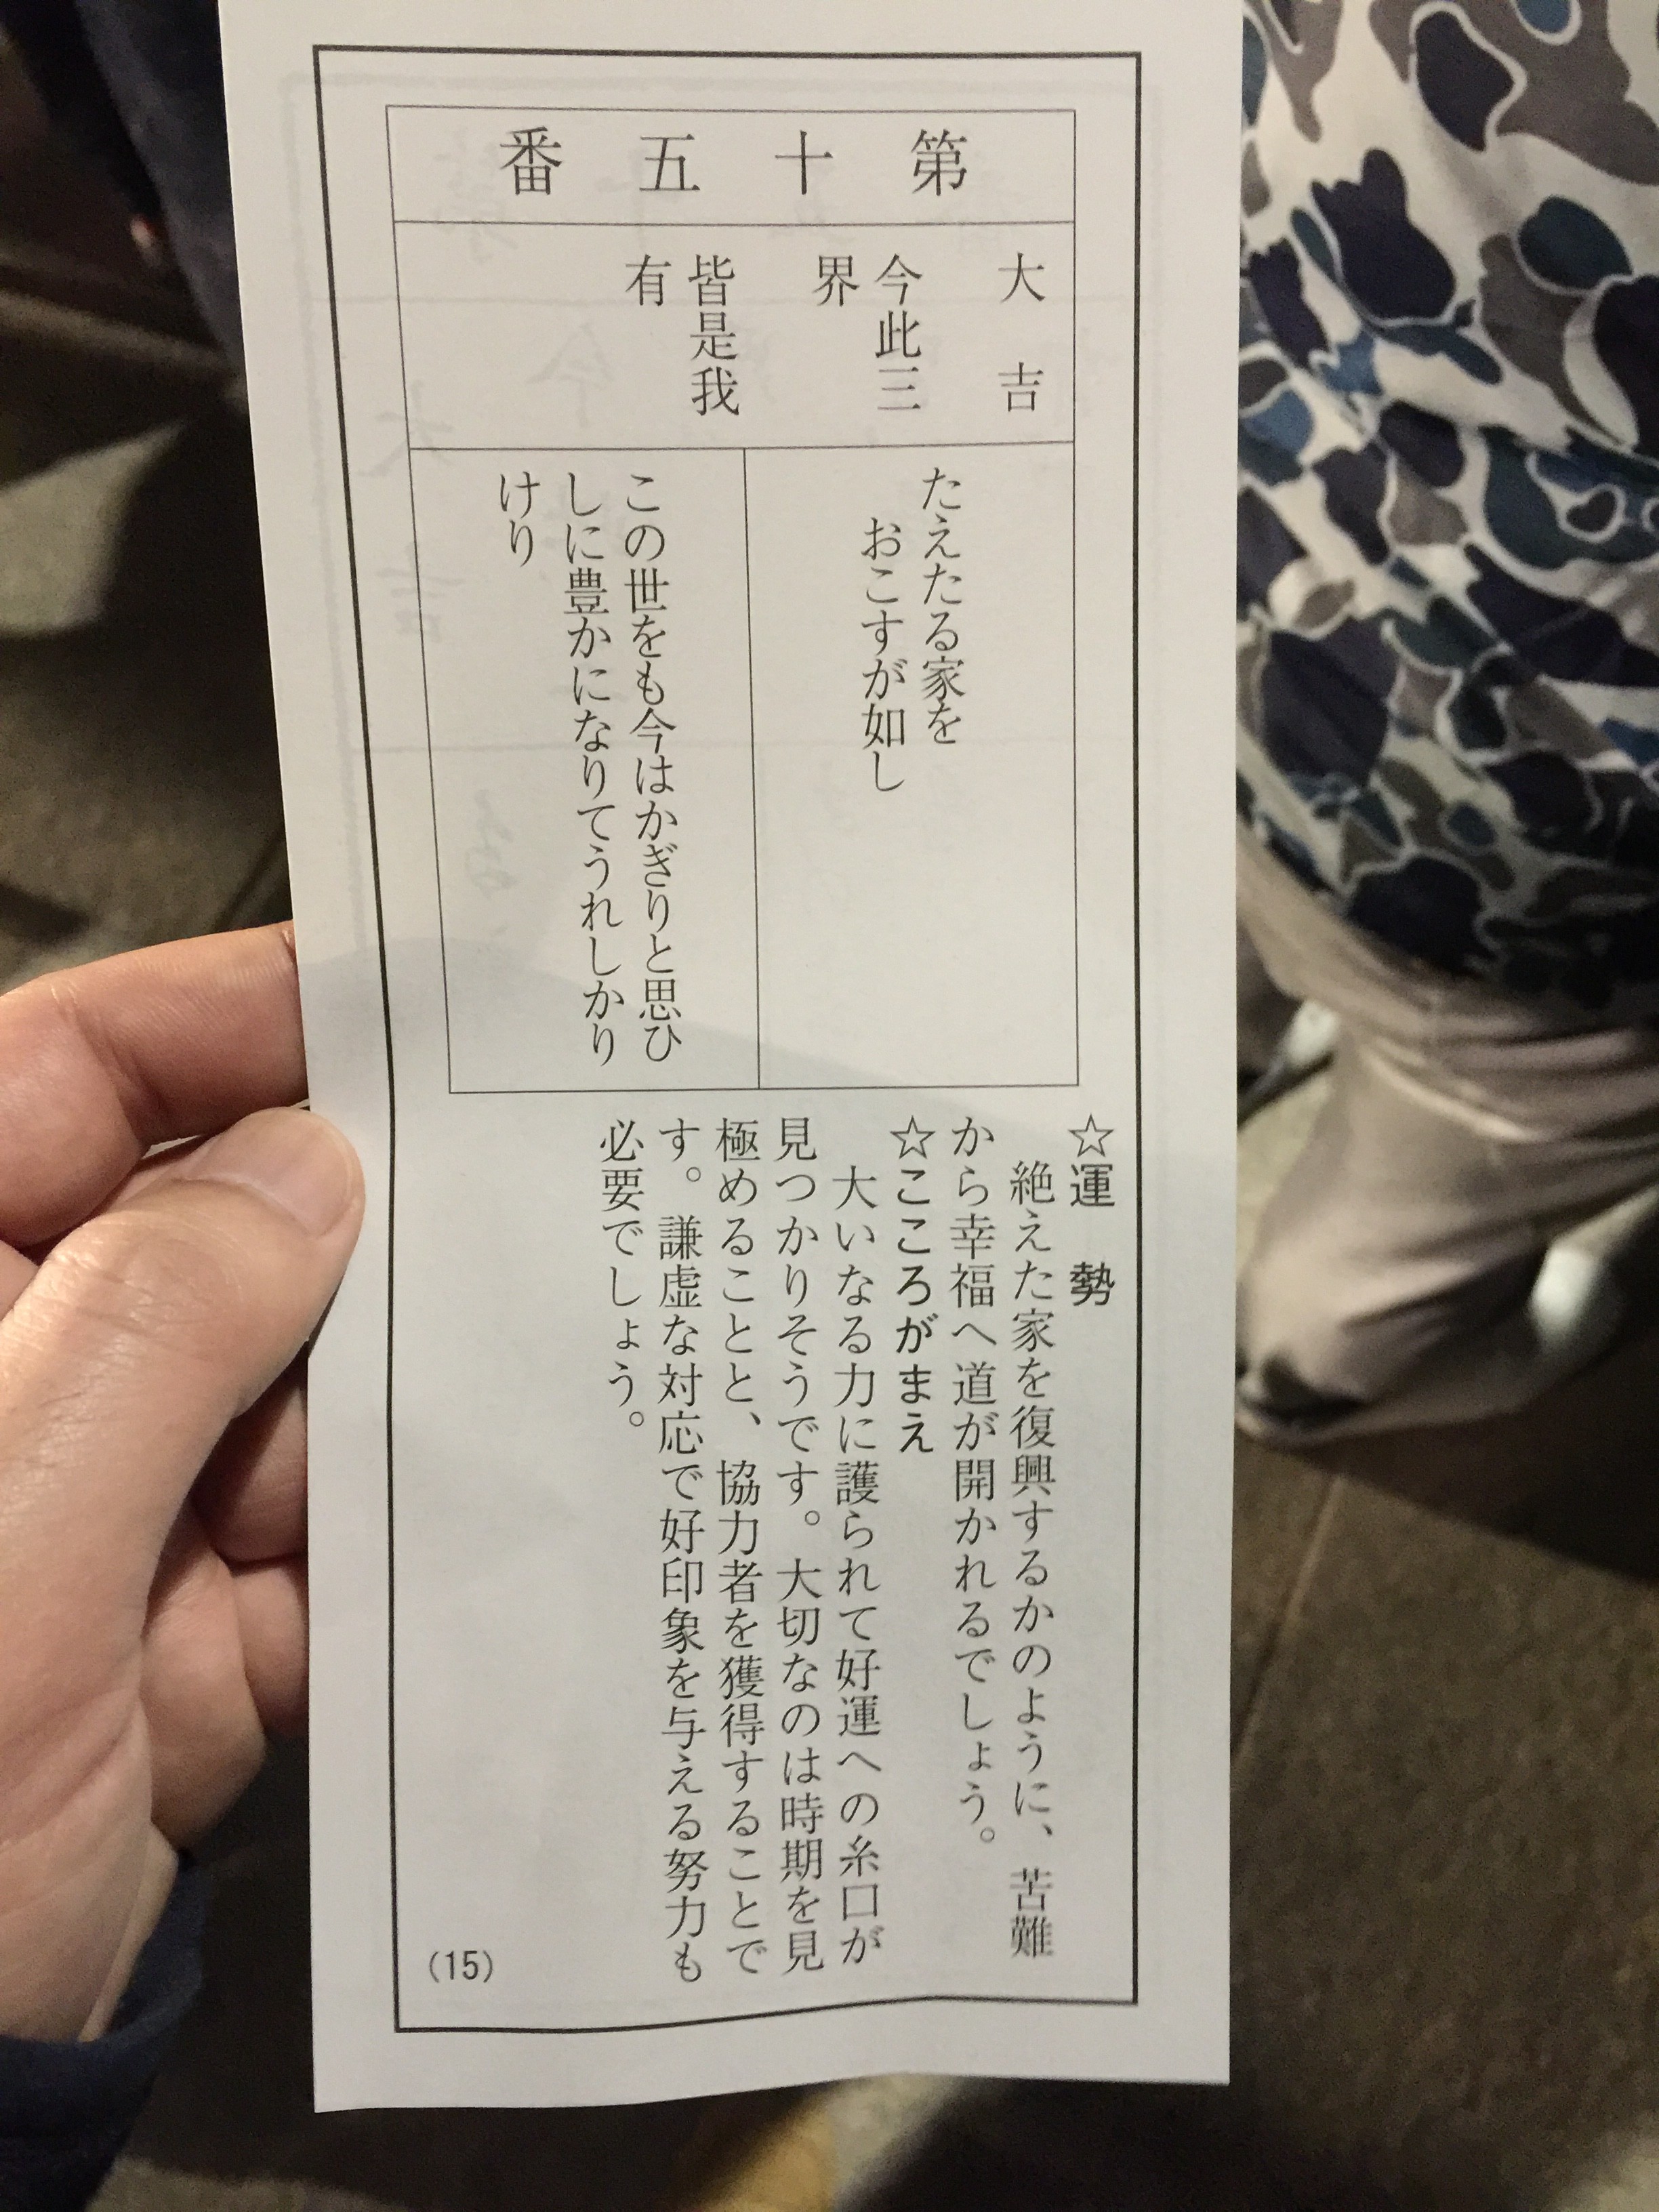 第十五番
大吉
今此三
界
皆是我
有
たえたる家を
おこすが如し
この世をも今はかぎりと思ひ
しに豊かになりてうれしかり
けり
☆運勢
絶えた家を復興するかのように、苦難
から幸福へ道が開かれるでしょう。
☆こころがまえ
大いなる力に護られて好運への糸口が
見つかりそうです。大切なのは時期を見
極めることと、協力者を獲得することで
す。謙虚な対応で好印象を与える努力も
必要でしょう。
(15)